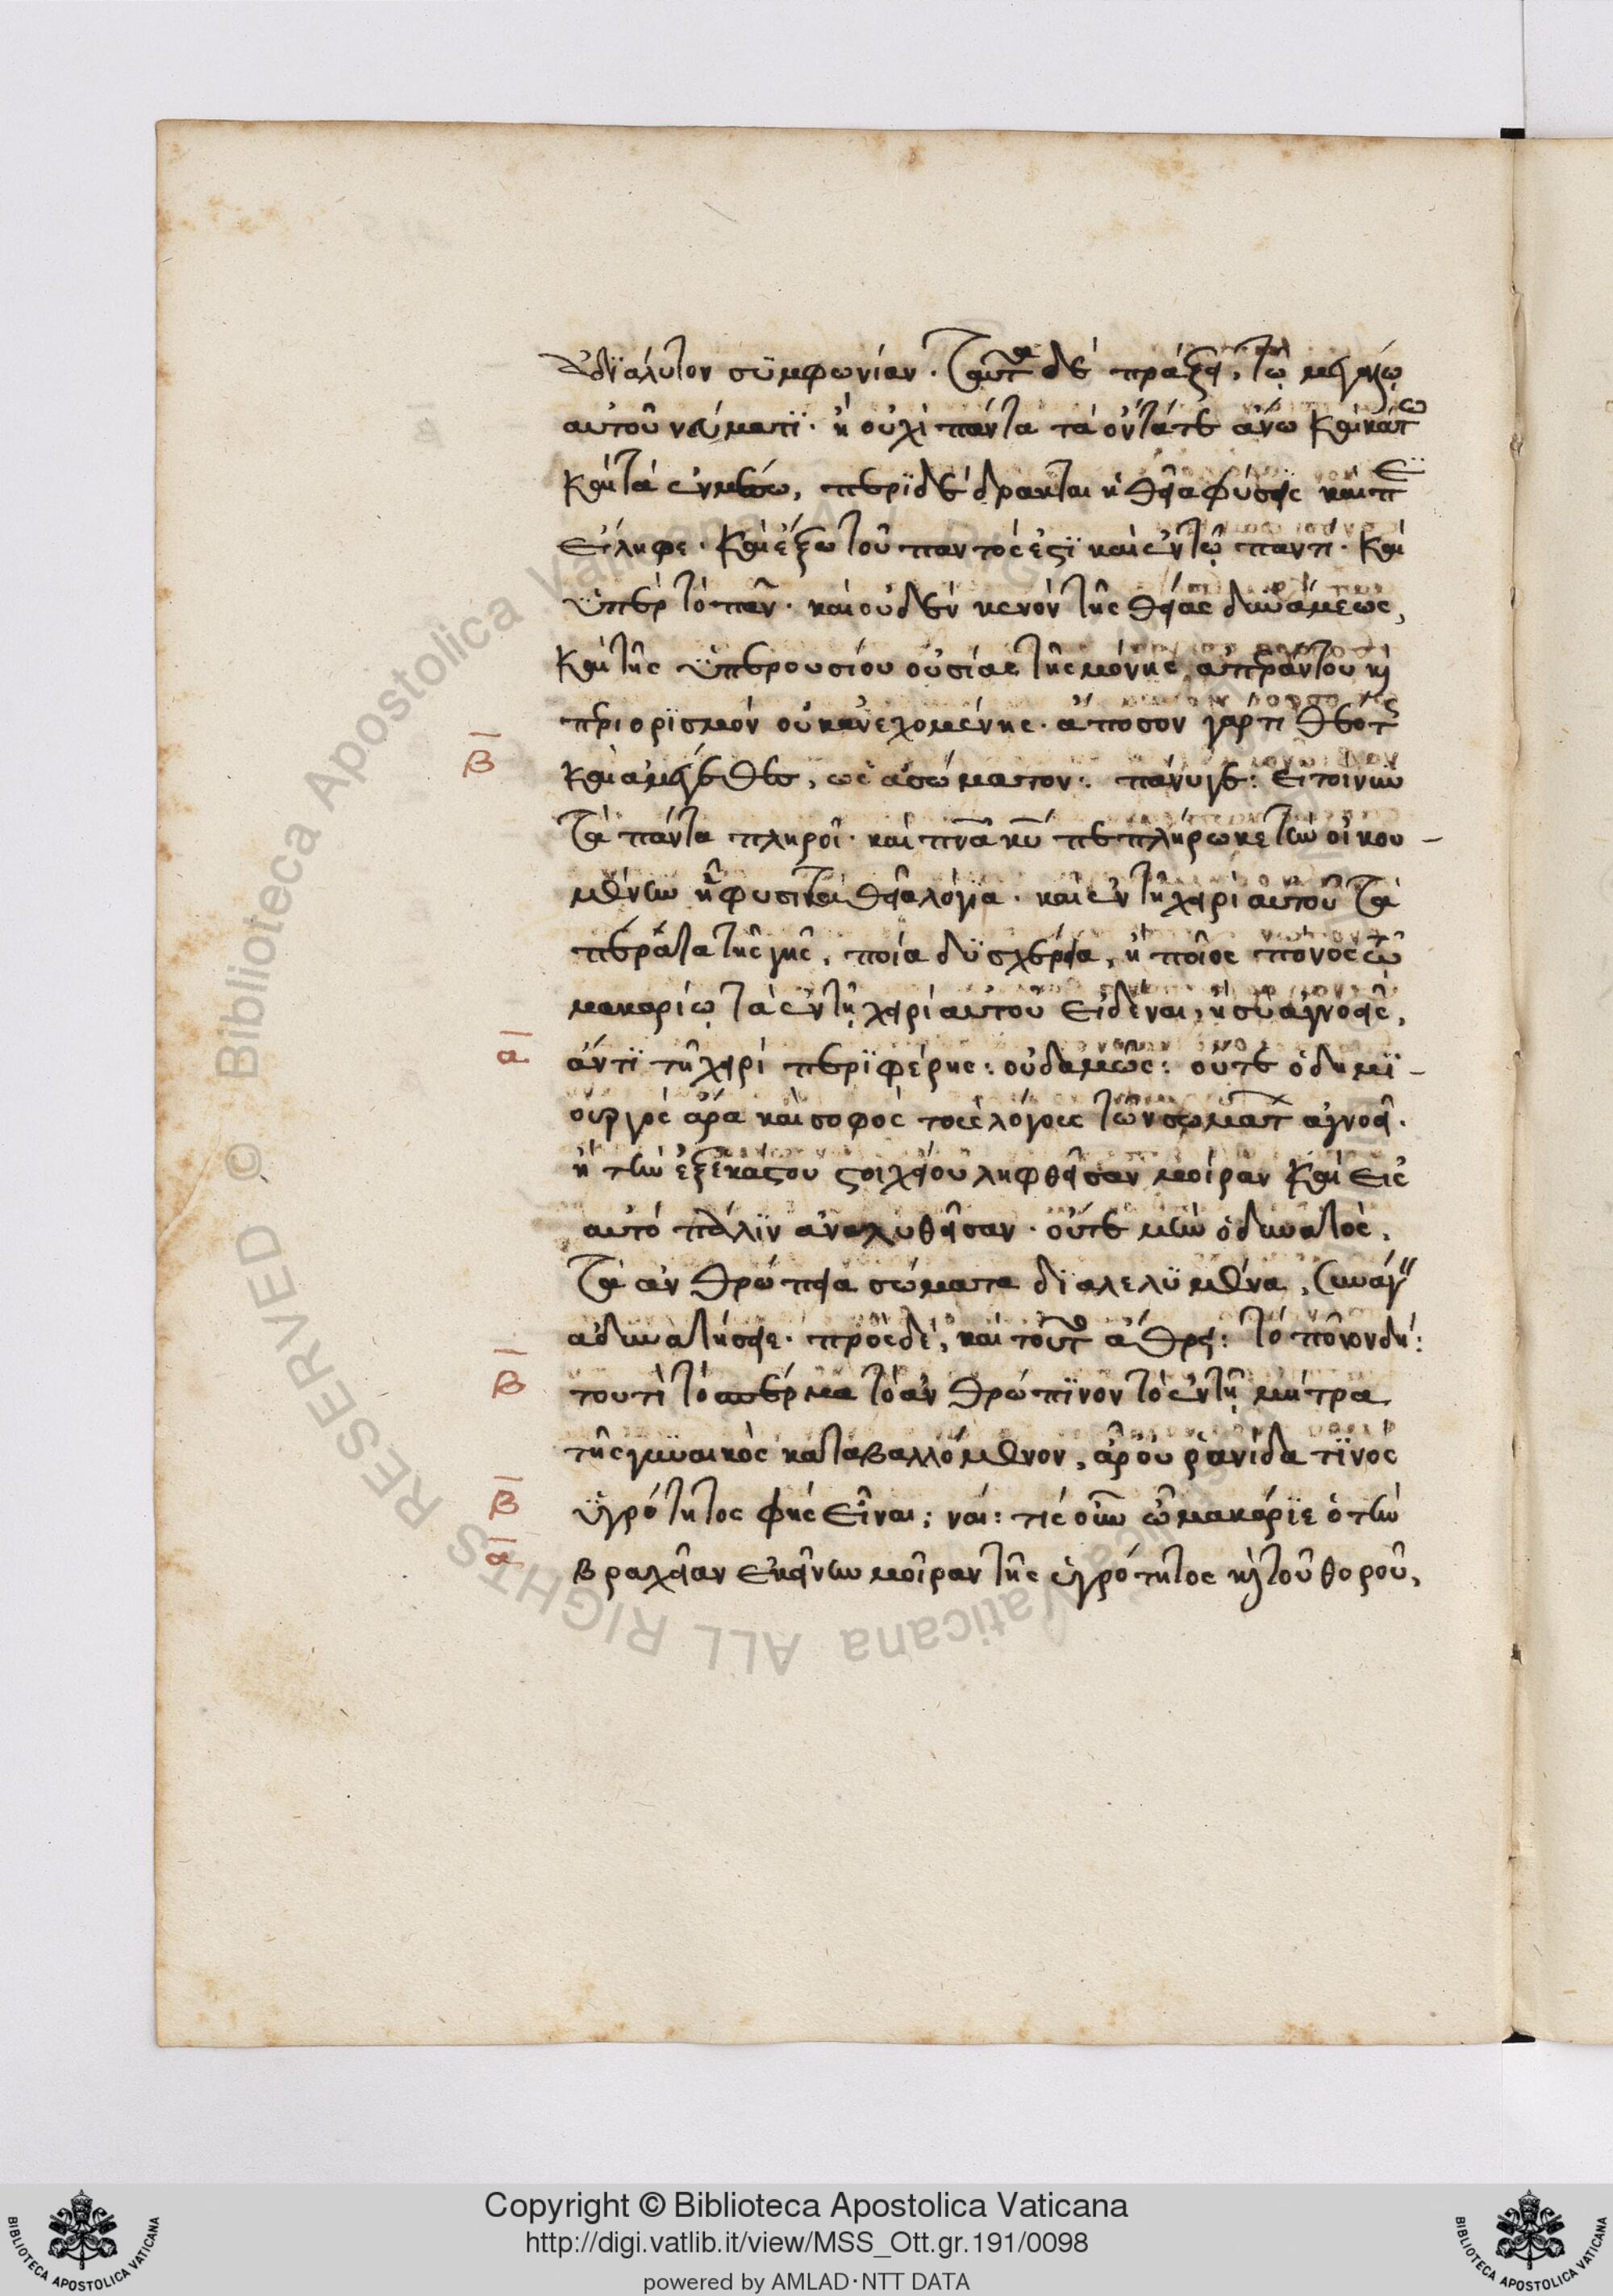 ἀδϊάλυτον σϋμφωνίαν. Ταῦτα δὲ πράξει, τῷ
αὐτοῦ νεύματι. ἢ οὐχὶ πάντα τὰ ὄντα τὲ ἄνω καὶ κάτω
καὶ τὰ ἐν μέσω, περϊδέδρακται ἡ θεία φύσις καὶ περι
είληφε. καὶ ἔξω τοῦ παντός ἐστϊ καὶ ἐν τῷ παντὶ. καὶ
ὑπὲρ τὸ πᾶν. καὶ οὐδὲν κενὸν τῆς θείας δυνάμεως,
καὶ τῆς ὑπερουσίου οὐσίας τῆς μόνης ἀπεράντου καὶ
περιορϊσμὸν οὐκ ἀνεχομένης. ἄποσον γάρ τι θεότης
β καὶ ἀμέγεθες, ὡς ἀσώματον: πάνυγε: εἰ τοίνυν
τὰ πάντα πληροῖ. καὶ πνᾶ κυ πεπλήρωκε τὴν οἰκου-
μένην ἡ φυσὶ θεολογία. καὶ ἐν τῆ χειρὶ αὐτοῦ τὰ
πέρατα τῆς γῆς, ποία δϋσχέρεια, ἢ ποῖος πόνος τῶ
μακαρίῳ τὰ ἐν τῆ χειρὶ αὐτοῦ εἰδέναι, ἢ σὺ ἀγνοεῖς,
α ἄν τϊ τῆ χειρὶ περϊφέρης: οὐδαμῶς: οὔτε ὁ δημϊ-
ουργὸς ἄρα καὶ σοφὸς τοὺς λόγους τῶν σωμάτων ἀγνοεῖ.
ἢ τὴν ἐξ ἑκάστου στοιχείου ληφθεῖσαν μοίραν καὶ εἰς
αὐτὸ πάλϊν ἀναλυθεῖσαν. οὔτε μὴν ὁ δυνατὸς.
τὰ ἀνθρώπεια σώματα δϊαλελϋμένα, συνάγειν
ἀδυνατήσειε. πρόσδε, καὶ τοῦτο ἄθρει: τὸ ποῖον δή:
β τουτὶ τὸ σπέρμα τὸ ἀνθρώπϊνον τὸ ἐν τῆ μήτρα
τῆς γυναικὸς καταβαλλόμενον, ἆρ οὐ ρανίδα τϊνὸς
β ὑγρότητος φὴς εἶναι; ναί: τίς οὖν ὦ μακάρϊε ὁ τὴν
α βραχεῖαν ἐκείνην μοῖραν τῆς ὑγρότητος καὶ τοῦ θοροῦ,
Copyright © Biblioteca Apostolica Vaticana
http://digi.vatlib.it/view/MSS_Ott.gr.191/0098
powered by AMLAD·NTT DATA
BIBLIOTECA APOSTOLICA VATICANA
BIBLIOTECA APOSTOLICA VATICANA
© Biblioteca Apostolica Vaticana ALL RIGHTS RESERVED